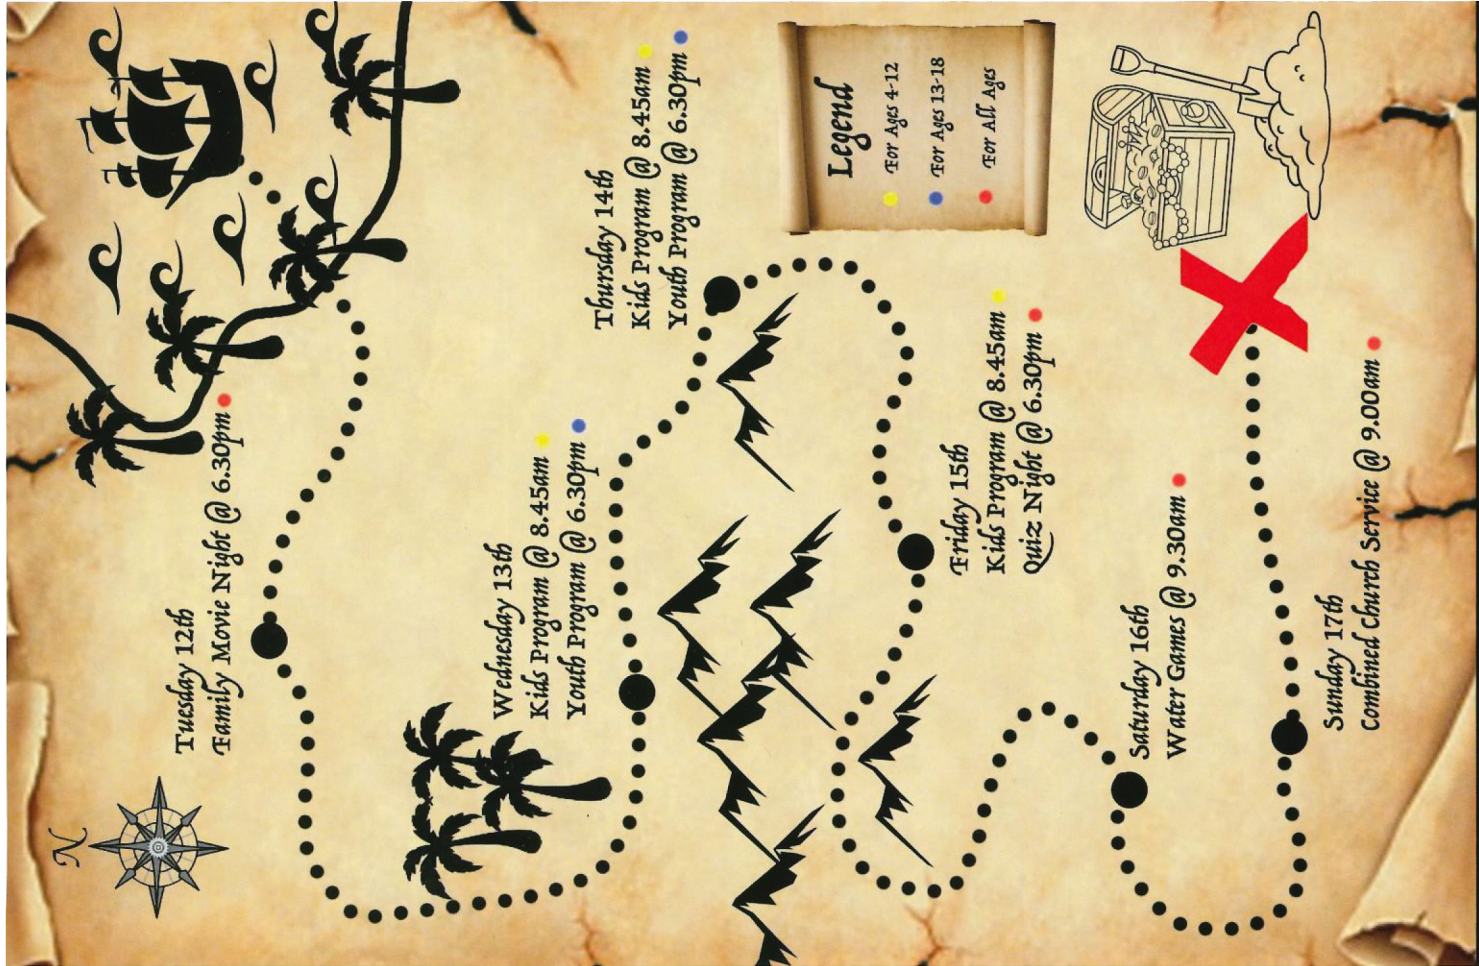 N
Tuesday 12th
Family Movie Night @ 6.30pm
Wednesday 13th
Kids Program @ 8.45am
Youth Program @ 6.30pm
Thursday 14th
Kids Program @ 8.45am
Youth Program @ 6.30pm
Legend
For Ages 4-12
For Ages 13-18
For All Ages
Friday 15th
Kids Program @ 8.45am
Quiz Night @ 6.30pm
Saturday 16th
Water Games @ 9.30am
Sunday 17th
Combined Church Service @ 9.00am